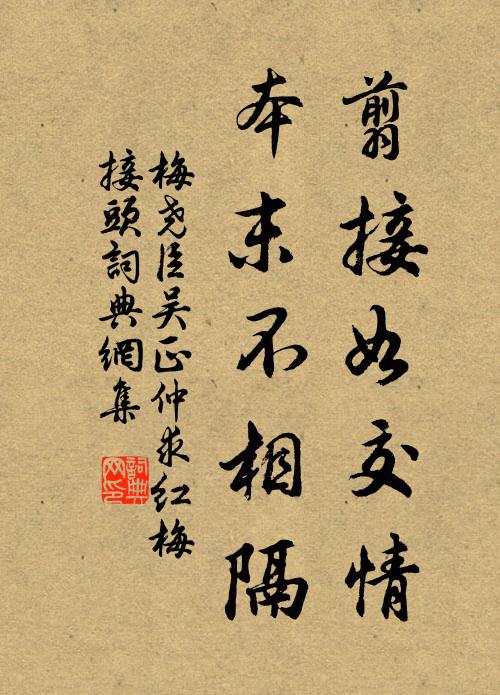 翦接如交情
本末不相隔
梅尧臣吴正仲求红梅
接頭詞典網集
詞典
网印